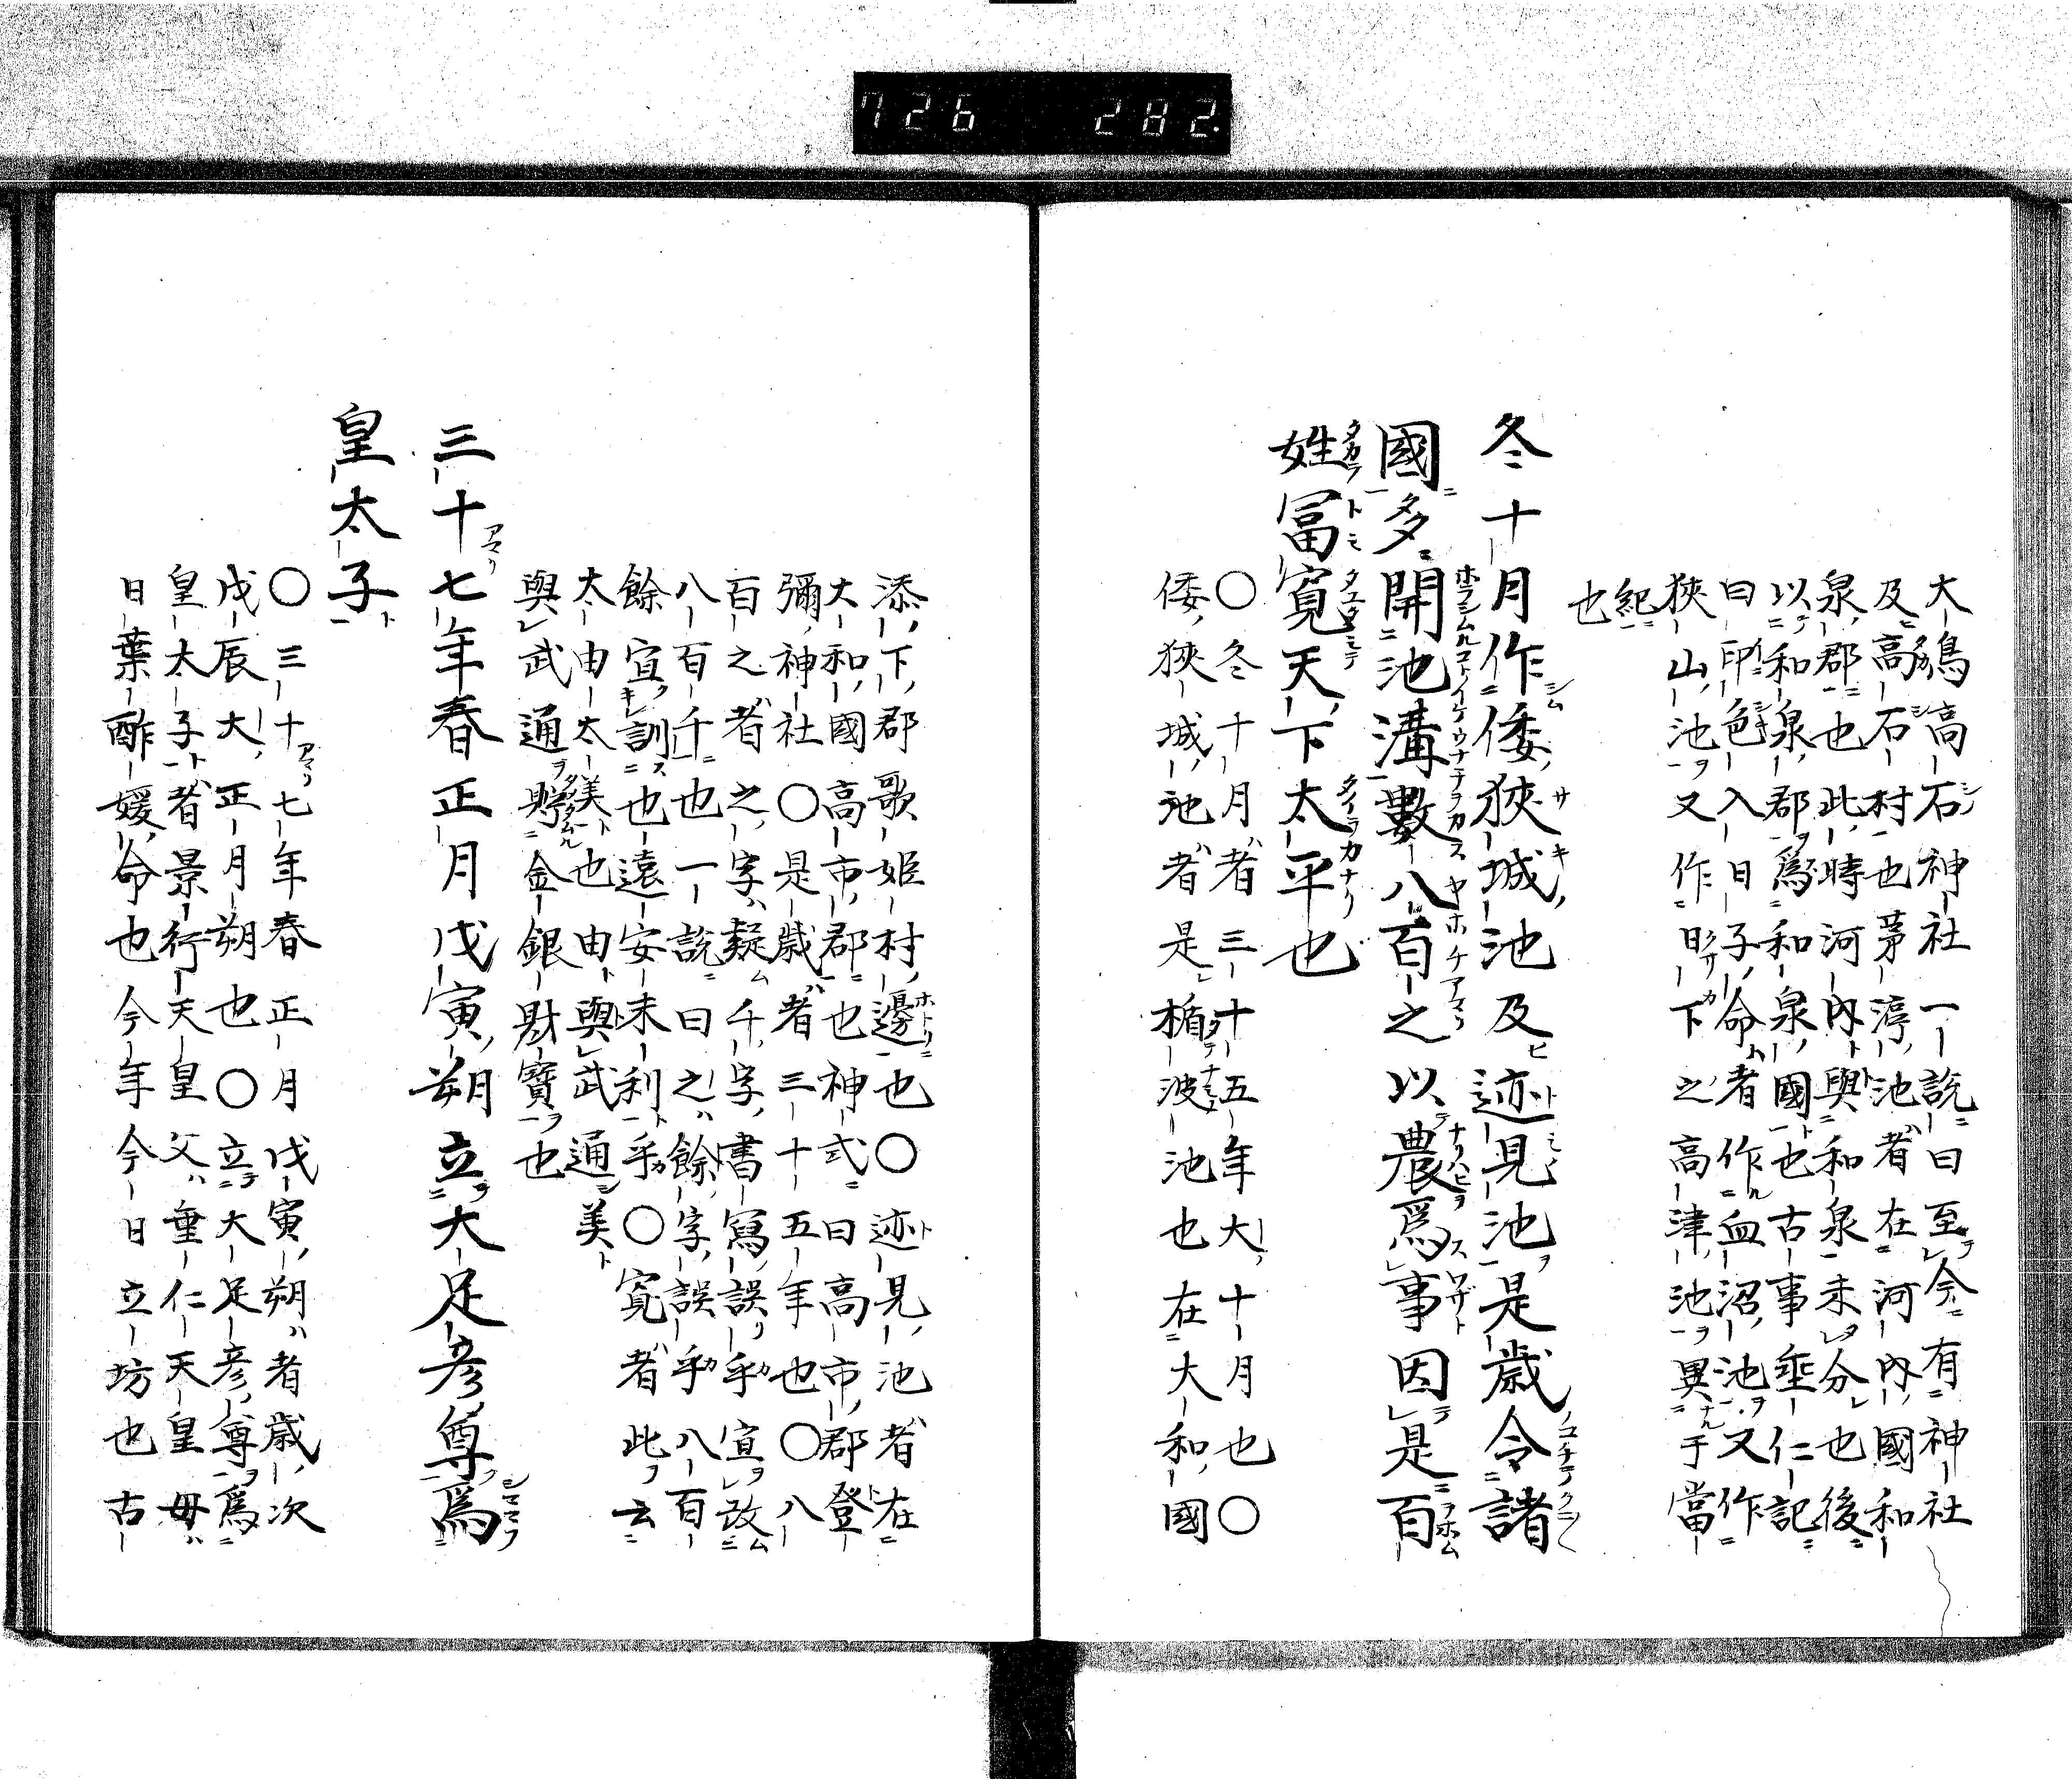 726 282
大鳥高石神社一説曰至今有神社
及高石村也茅渟池者在河內國和
泉郡也此時河內與和泉未分也後
以和泉郡爲和泉國也古事垂仁記
曰印色入日子命者作血沼池又作
狹山池又作日下之高津池異于當
紀也
冬十月作倭狹城池及迹見池是歲令諸
國多開池溝數八百之以農爲事因是百
姓冨寬天下太平也
○冬十月者三十五年大十月也○
倭狹城池者是楯波池也在大和國
添下郡歌姬村邊也○迹見池者在
大和國高市郡也神式曰高市郡登
彌神社○是歲者三十五年也○八
百之者之字疑千字書寫誤乎宜改
八百千也一說曰之餘字誤乎八百
餘宜訓也遠安未利乎○寬者此云
太由太美也由與武通美
與武通貯金銀財寶也
三十七年春正月戊寅朔立大足彥尊爲
皇太子
○三十七年春正月戊寅朔者歲次
戊辰大正月朔也○立大足彥尊爲
皇太子者景行天皇父垂仁天皇母
日葉酢媛命也今年今日立坊也古